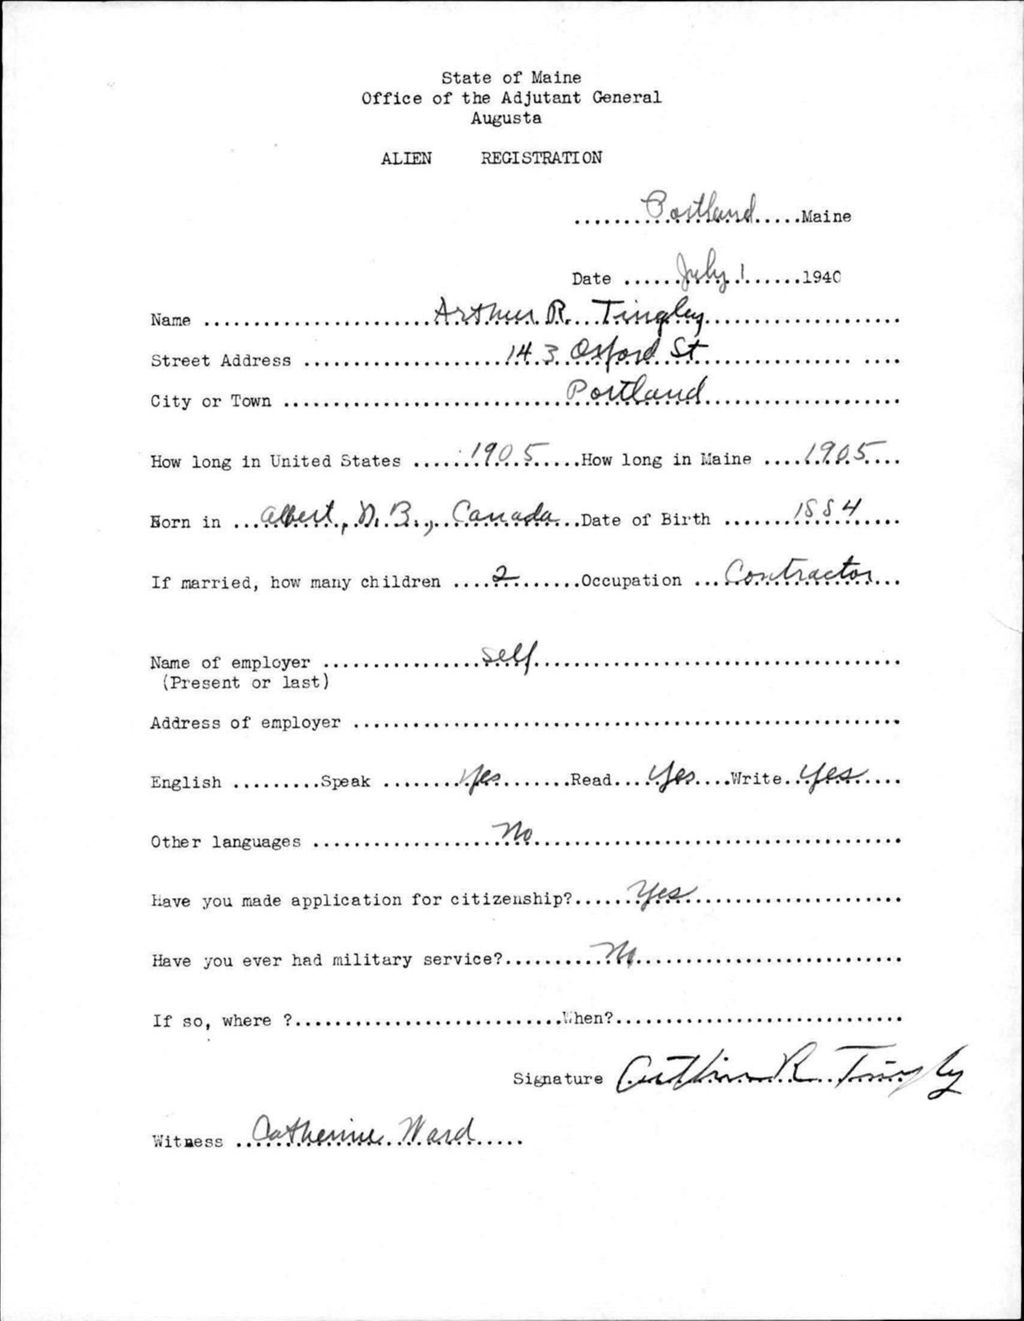 State of Maine
Office of the Adjutant General
Augusta
ALIEN REGISTRATION
.......Portland.....Maine
Date ......July 1......1940
Name .......................Arthur R. Tingley....................
Street Address ....................143 Oxford St.................... ....
City or Town ............................Portland....................
How long in United States ......1905......How long in Maine ....1905....
Born in ...Albert, N.B., Canada...Date of Birth .......1884.....
If married, how many children ....2.......Occupation ...Contractor...
Name of employer ................self.....................................
(Present or last)
Address of employer .......................................................
English .........Speak ........Yes........Read....Yes....Write..Yes.....
Other languages ...................No.....................................
Have you made application for citizenship?......Yes.....................
Have you ever had military service?..........No...........................
If so, where ?...........................When?.............................
Signature Arthur R. Tingley
Witness ..Catherine Ward.....